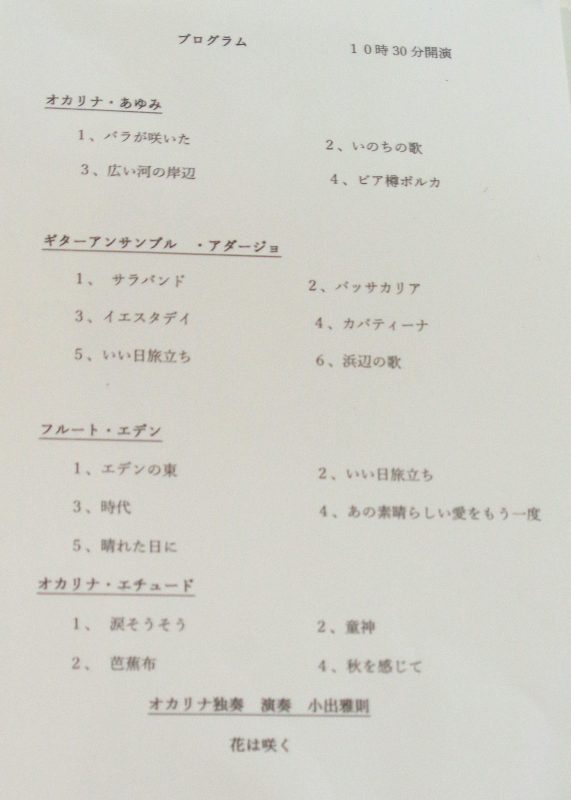 プログラム　10時30分開演
オカリナ・あゆみ
1、バラが咲いた　2、いのちの歌
3、広い河の岸辺　4、ビア樽ポルカ
ギターアンサンブル　・アダージョ
1、　サラバンド　2、パッサカリア
3、イエスタデイ　4、カバティーナ
5、いい日旅立ち　6、浜辺の歌
フルート・エデン
1、エデンの東　2、いい日旅立ち
3、時代　4、あの素晴らしい愛をもう一度
5、晴れた日に
オカリナ・エチュード
1、　涙そうそう　2、童神
2、　芭蕉布　4、秋を感じて
オカリナ独奏　演奏　小出雅則
花は咲く